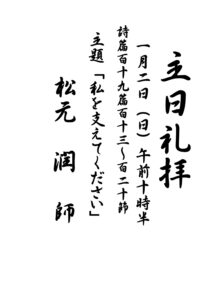 主日礼拝
一月二日（日）午前十時半
詩篇百十九篇百十三～百二十節
主題「私を支えてください」
松元　潤　師